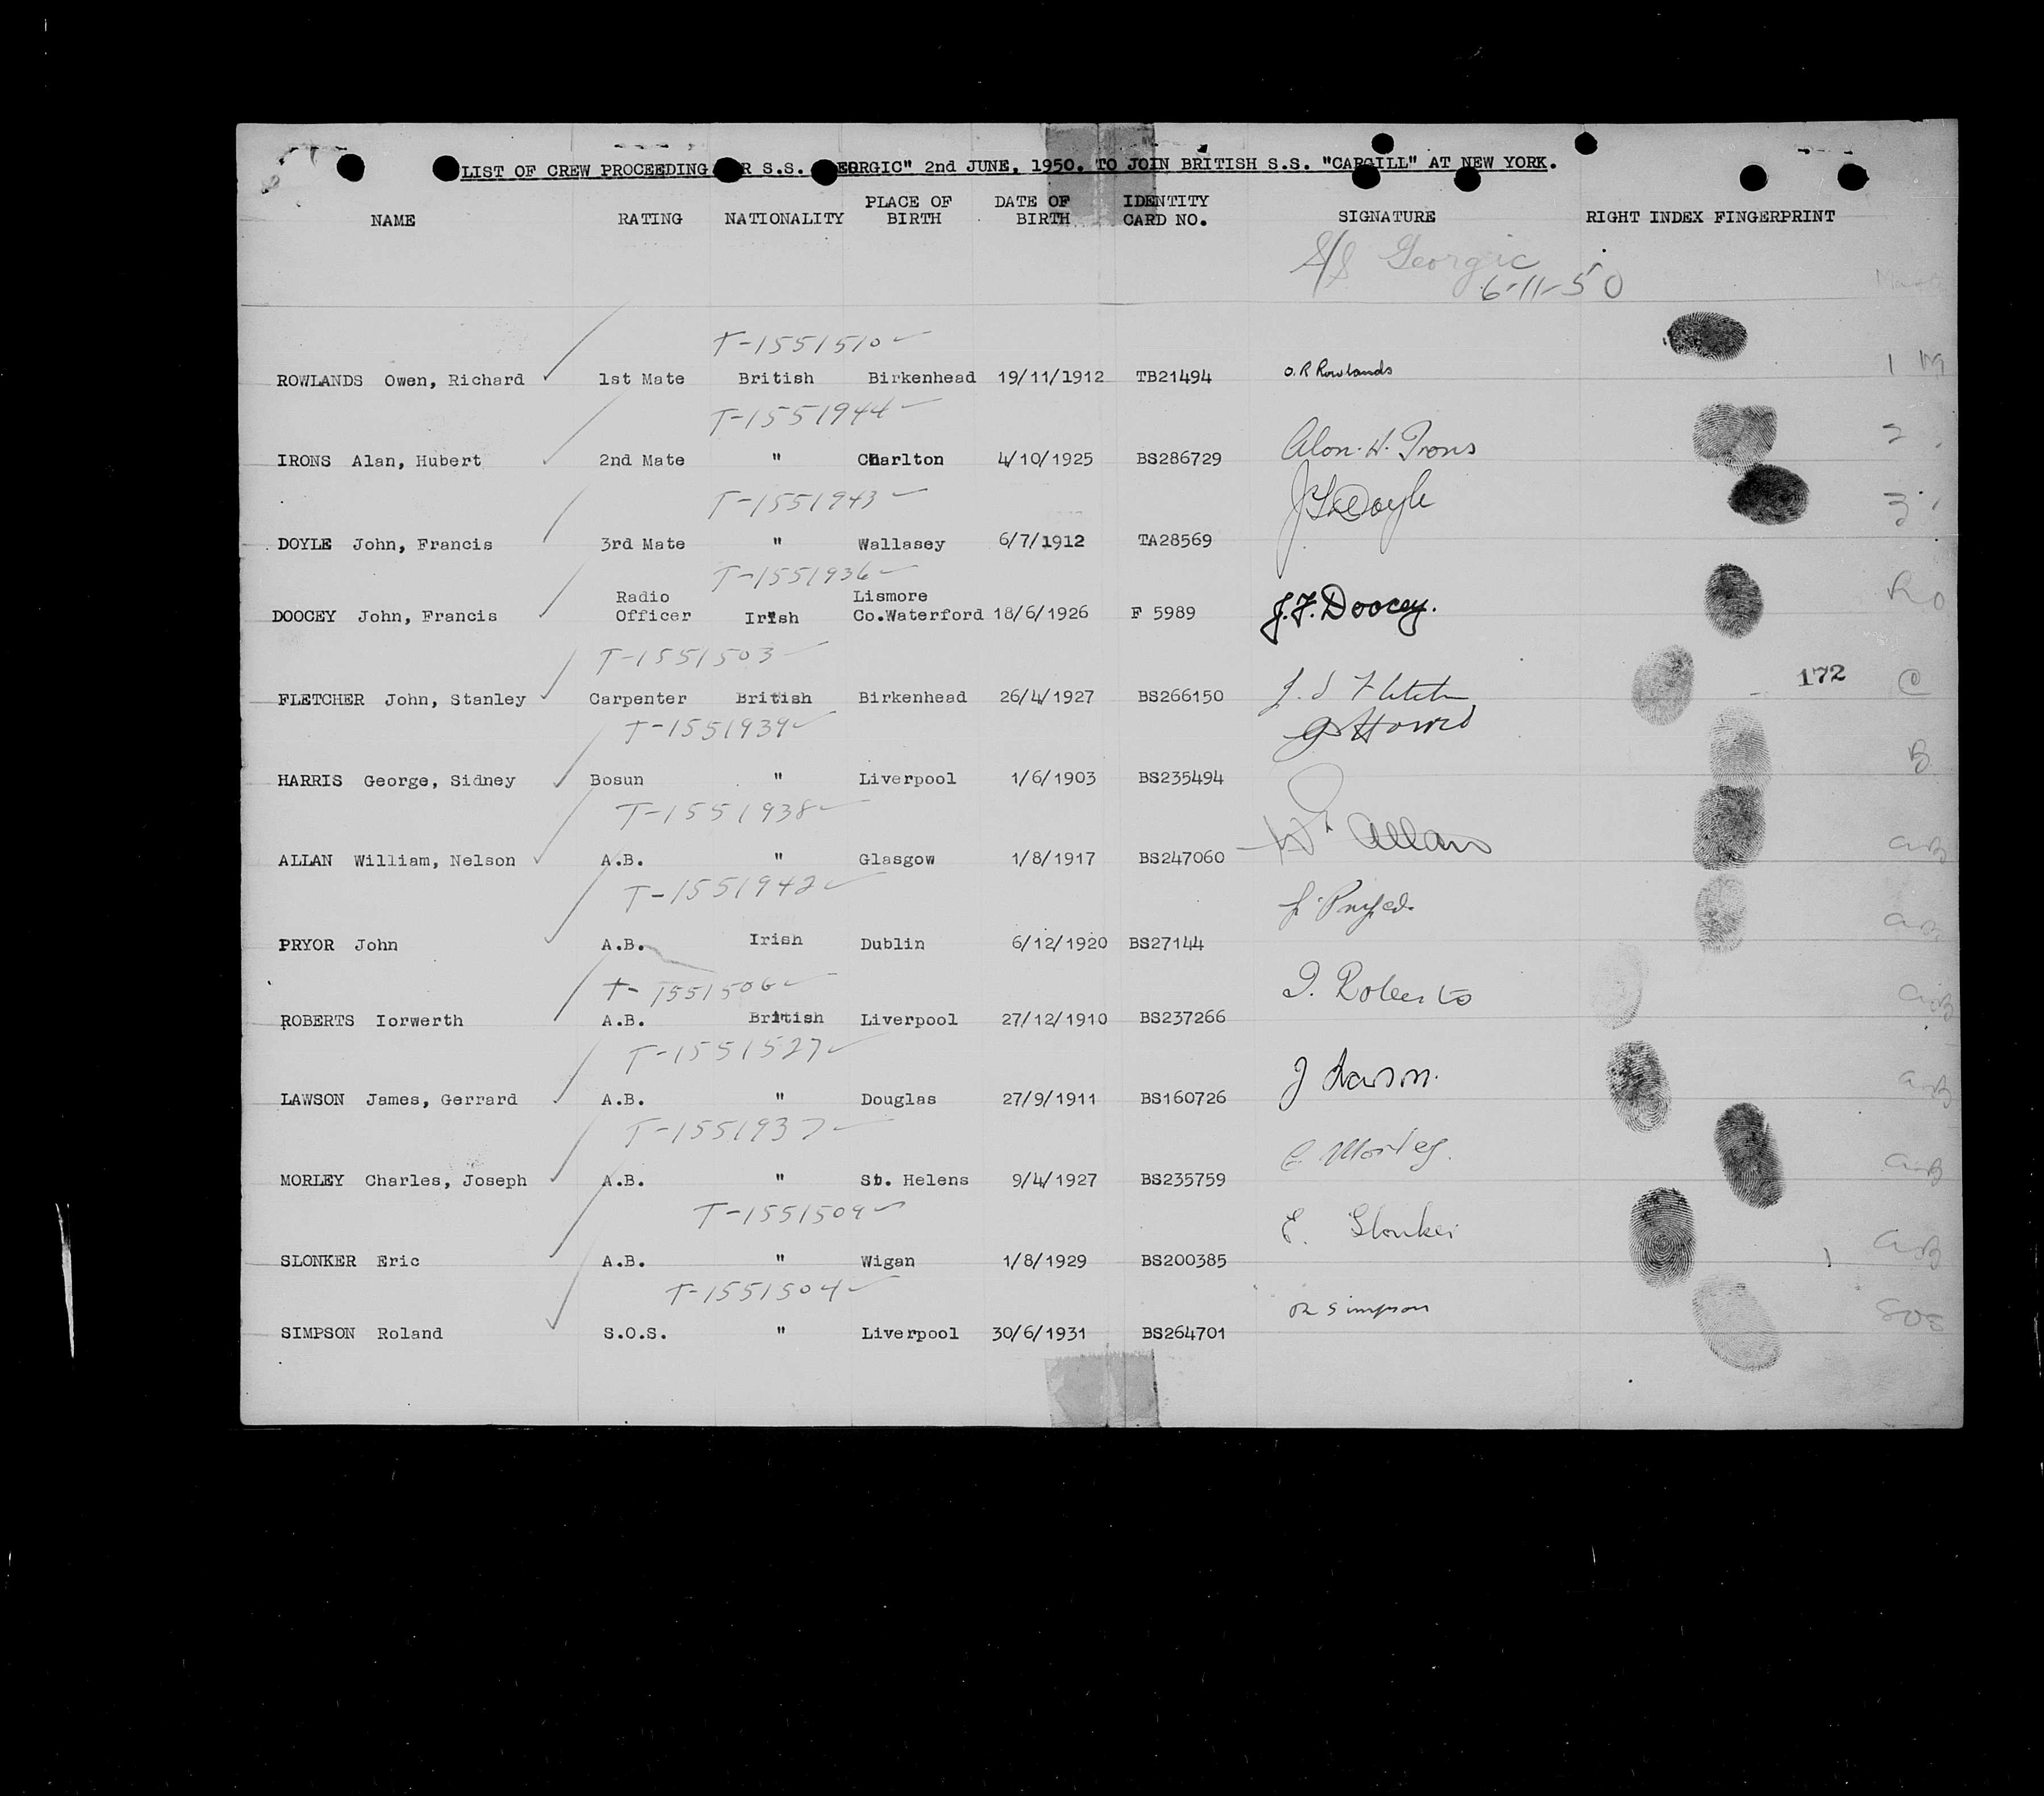 LIST OF CREW PROCEEDING R S.S. EORGIC" 2nd JUNE, 1950. TO JOIN BRITISH S.S. "CARGILL" AT NEW YORK.
NAME RATING NATIONALITY PLACE OF BIRTH DATE OF BIRTH IDENTITY CARD NO. SIGNATURE RIGHT INDEX FINGERPRINT
S/S Georgic
6-11-50
T-1551510
ROWLANDS Owen, Richard 1st Mate British Birkenhead 19/11/1912 TB21494 O. R Rowlands 1 M
T-1551944
IRONS Alan, Hubert 2nd Mate " Charlton 4/10/1925 BS286729 Alan. H. Irons 2
T-1551943
DOYLE John, Francis 3rd Mate " Wallasey 6/7/1912 TA28569 J F Doyle 3
T-1551936
DOOCEY John, Francis Radio Officer Irish Lismore Co.Waterford 18/6/1926 F 5989 J. F. Doocey. RO
T-1551503
FLETCHER John, Stanley Carpenter British Birkenhead 26/4/1927 BS266150 J. S Fletcher 172 C
T-1551939
HARRIS George, Sidney Bosun " Liverpool 1/6/1903 BS235494 G Harris B
T-1551938
ALLAN William, Nelson A.B. " Glasgow 1/8/1917 BS247060 Wm Allan AB
T-1551942
PRYOR John A.B. Irish Dublin 6/12/1920 BS27144 AB
T-1551506
ROBERTS Iorwerth A.B. British Liverpool 27/12/1910 BS237266 I. Roberts AB
T-1551527
LAWSON James, Gerrard A.B. " Douglas 27/9/1911 BS160726 J Lawson. AB
T-1551937
MORLEY Charles, Joseph A.B. " St. Helens 9/4/1927 BS235759 C Morley. AB
T-1551509
SLONKER Eric A.B. " Wigan 1/8/1929 BS200385 E. Slonker AB
T-1551504
SIMPSON Roland S.O.S. " Liverpool 30/6/1931 BS264701 R Simpson SOS